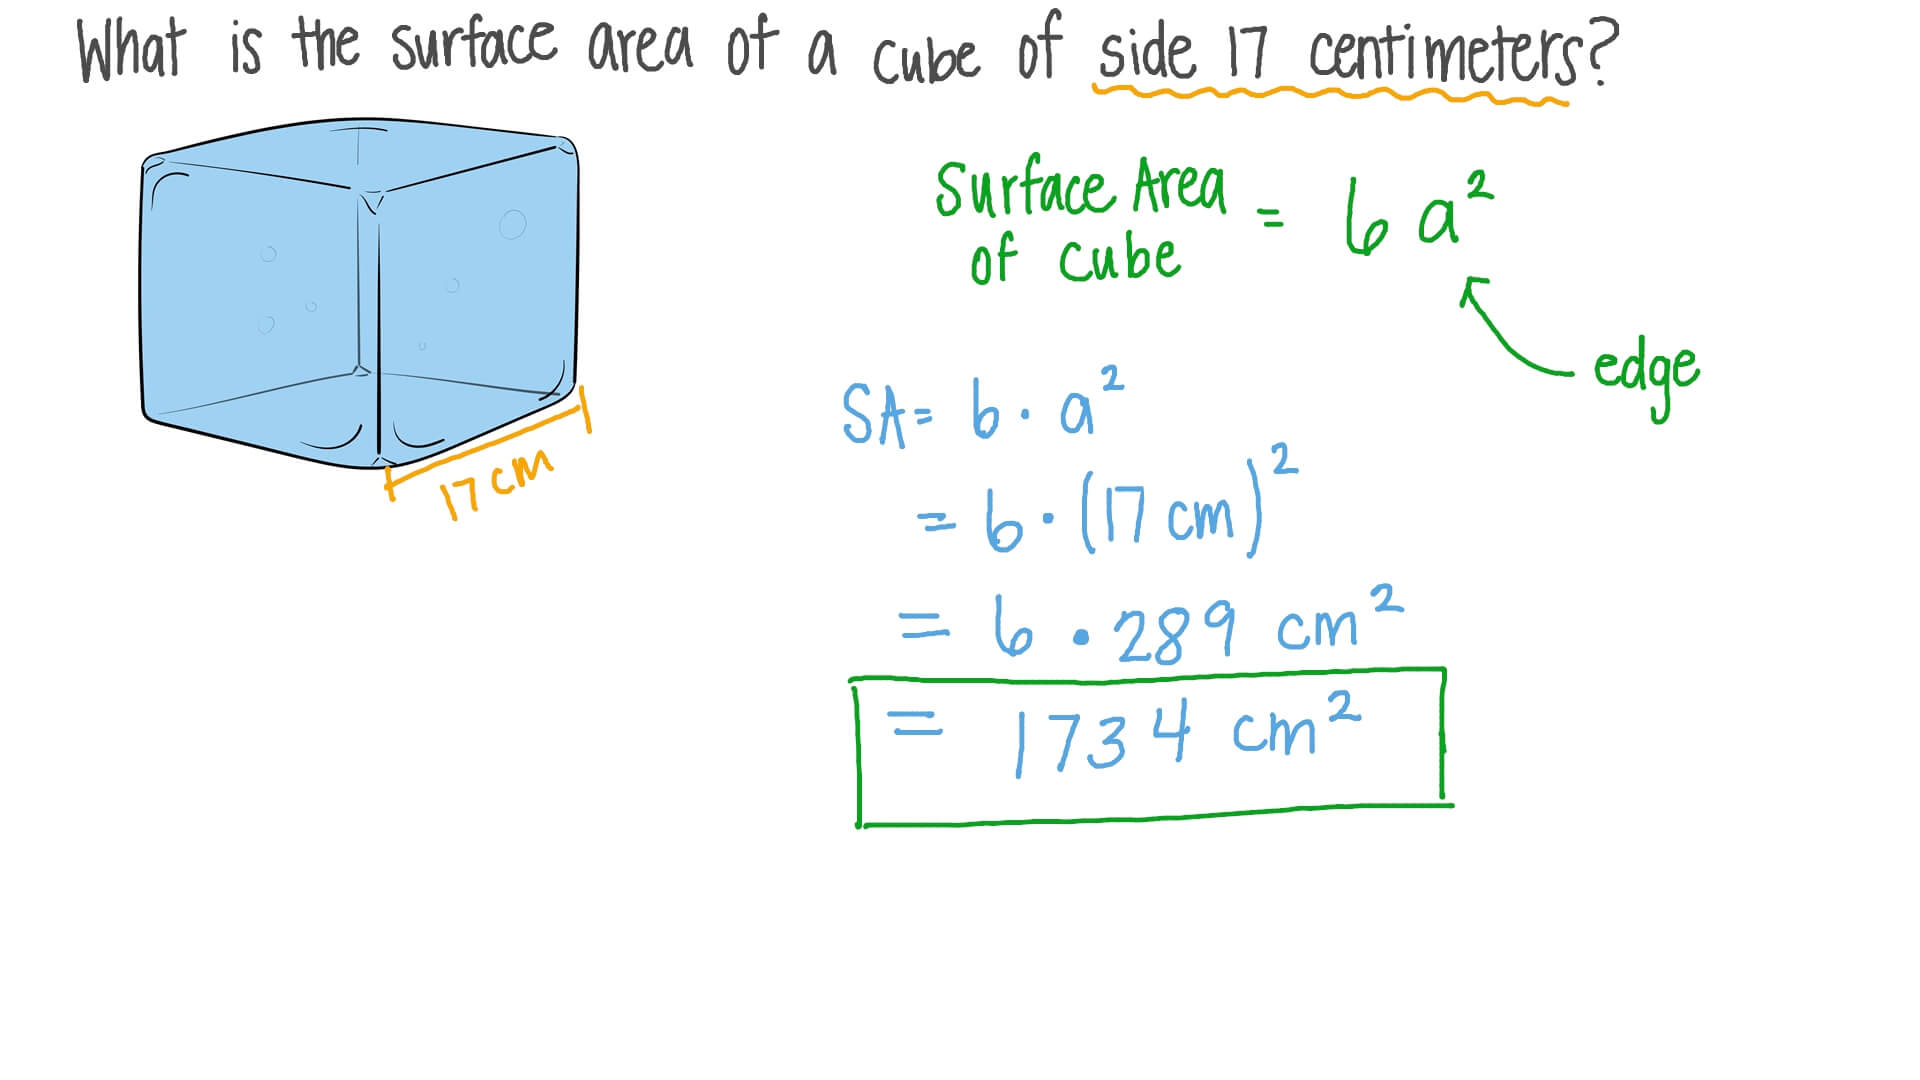 What is the surface area of a cube of side 17 centimeters?
Surface Area
of cube = 6 a²
edge
17 cm
SA = 6 · a²
= 6 · (17 cm)²
= 6 · 289 cm²
= 1734 cm²